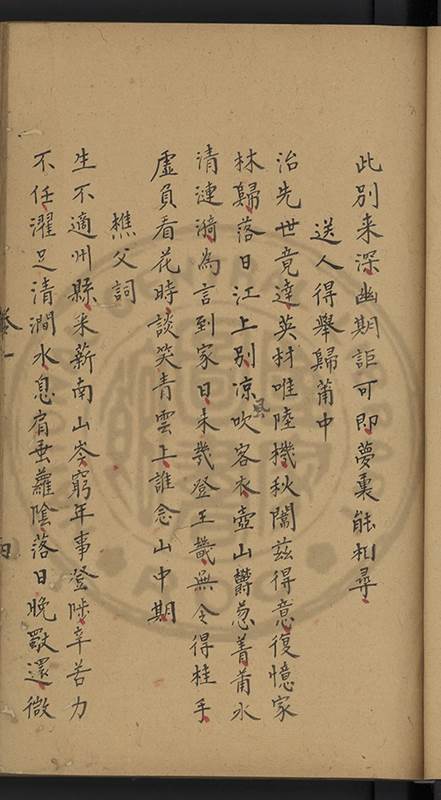 此別来深幽期詎可即夢裏能相尋
送人得舉歸莆中
治先世竟達英材唯陸機秋闈茲得意復憶家
林歸落日江上別凉吹客衣壺山鬱葱菁莆水
風
清漣漪為言到家日未幾登王畿無令得桂手
虛負看花時談笑青雲上誰念山中期
樵父詞
生不適州縣采薪南山岑窮年事登陟辛苦力
不任濯足清澗水息肩垂蘿陰落日晚歌還微
卷一
四